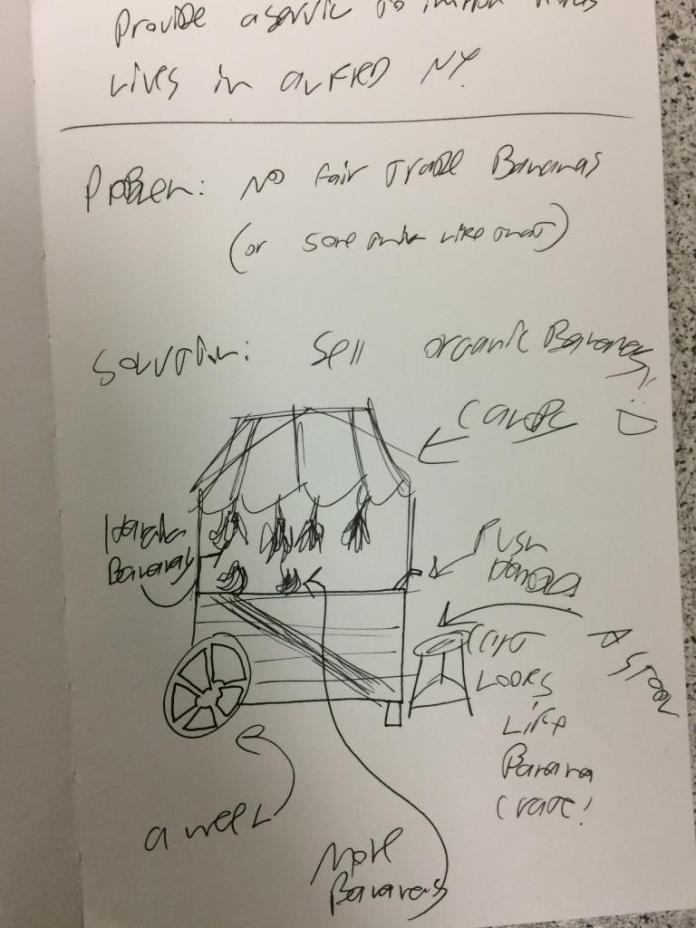 Provide a servic to
Lives in alFRED NY
Problem: No Fair Trade Bananas
(or some like that)
Solution: Sell organic Bananas
canope
Bananas
Push
Handle
A Stool
Cart
Looks
Like
Banana
Crate!
a weel
More
Bananas